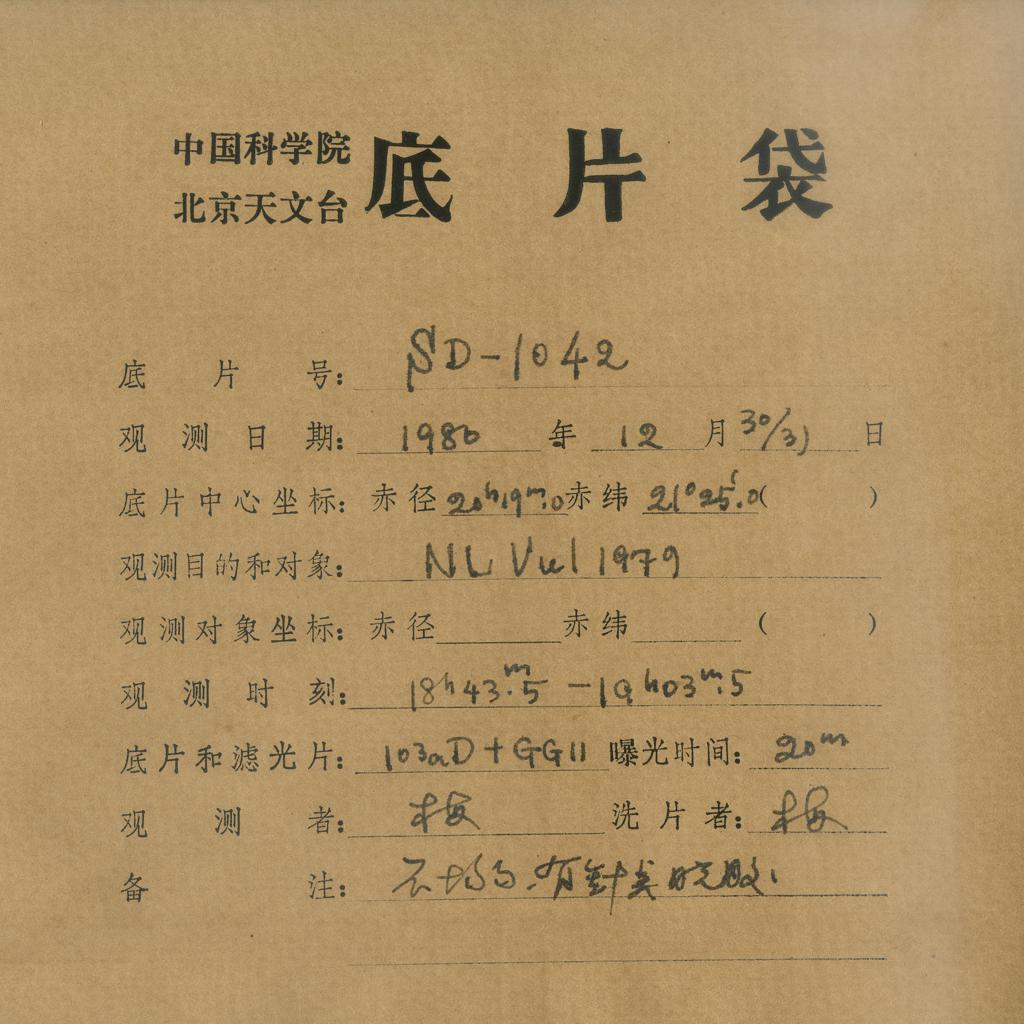 中国科学院
北京天文台
底片袋
底片号: SD-1042
观测日期: 1980 年 12 月 30/31 日
底片中心坐标: 赤径 20h19m.0 赤纬 21°25'.0 ( )
观测目的和对象: NL Vul 1979
观测对象坐标: 赤径 赤纬 ( )
观测时刻: 18h43m.5 - 19h03m.5
底片和滤光片: 103aD + GG11 曝光时间: 20m
观测者: 梅 洗片者: 梅
备注: 不均匀.有针